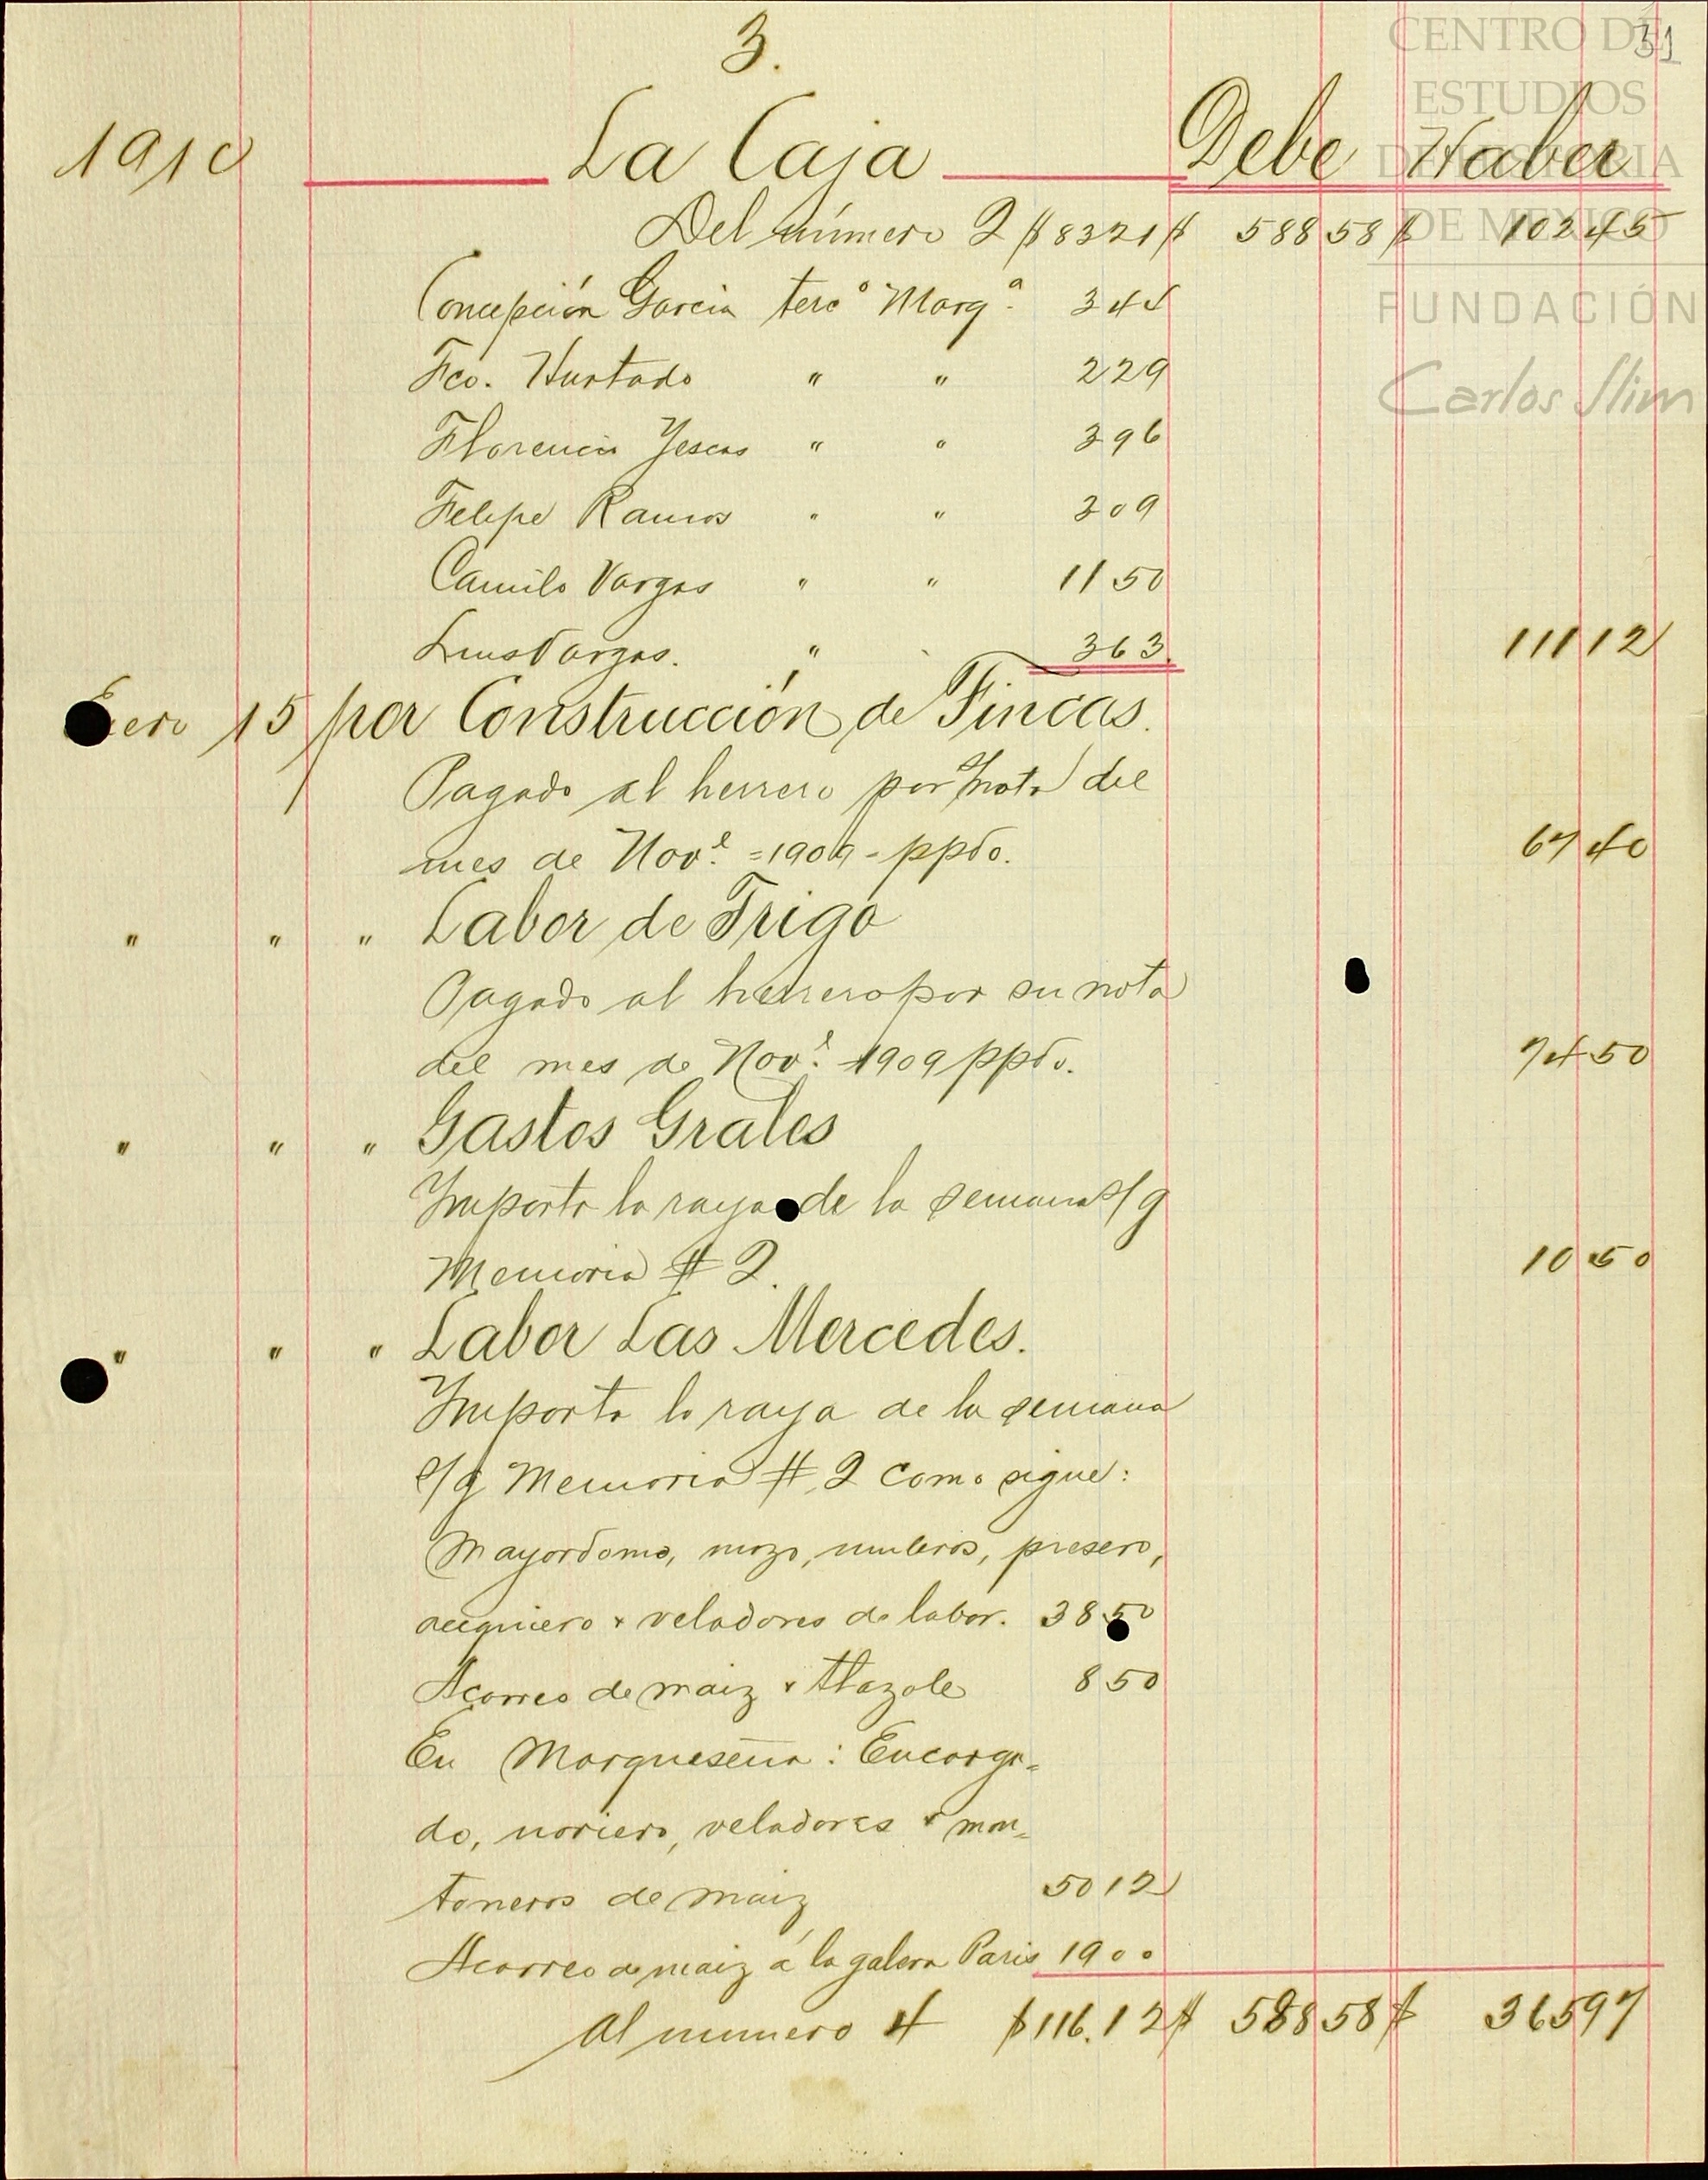 31
3.
1910 La Caja Debe Haber
Del número 2 $ 83 21 $ 588 58 $ 102 45
Concepción Garcia terc° Marqª. 3 44
Fco. Hurtado " " 2 29
Florencio Yescas " " 3 96
Felipe Ramos " " 3 09
Camilo Vargas " " 11 50
Luis Vargas. " 3 63. 111 12
Enero 15 por Construcción de Fincas.
Pagado al herrero por nota del
mes de Novᵉ. =1909- ppdo. 67 40
" " " Labor de Trigo
Pagado al herrero por su nota
del mes de Novᵉ. 1909 ppdo. 74 50
" " " Gastos Grales
Importo la raya de la semana s/g
Memoria # 2. 10 50
" " " Labor Las Mercedes.
Importo la raya de la semana
s/g Memoria # 2 como sigue:
Mayordomo, mozo, muleros, presero,
acequiero y veladores de labor. 38 50
Acarreo de maiz y tlazole 8 50
En Marqueseña: Encarga=
do, noriero, veladores y mon=
toneros de maiz 50 12
Acarreo de maiz á la galera Paris 19 00
Al numero 4 $ 116.12 $ 588 58 $ 365 97
CENTRO DE
ESTUDIOS
DE HISTORIA
DE MÉXICO
FUNDACIÓN
Carlos Slim